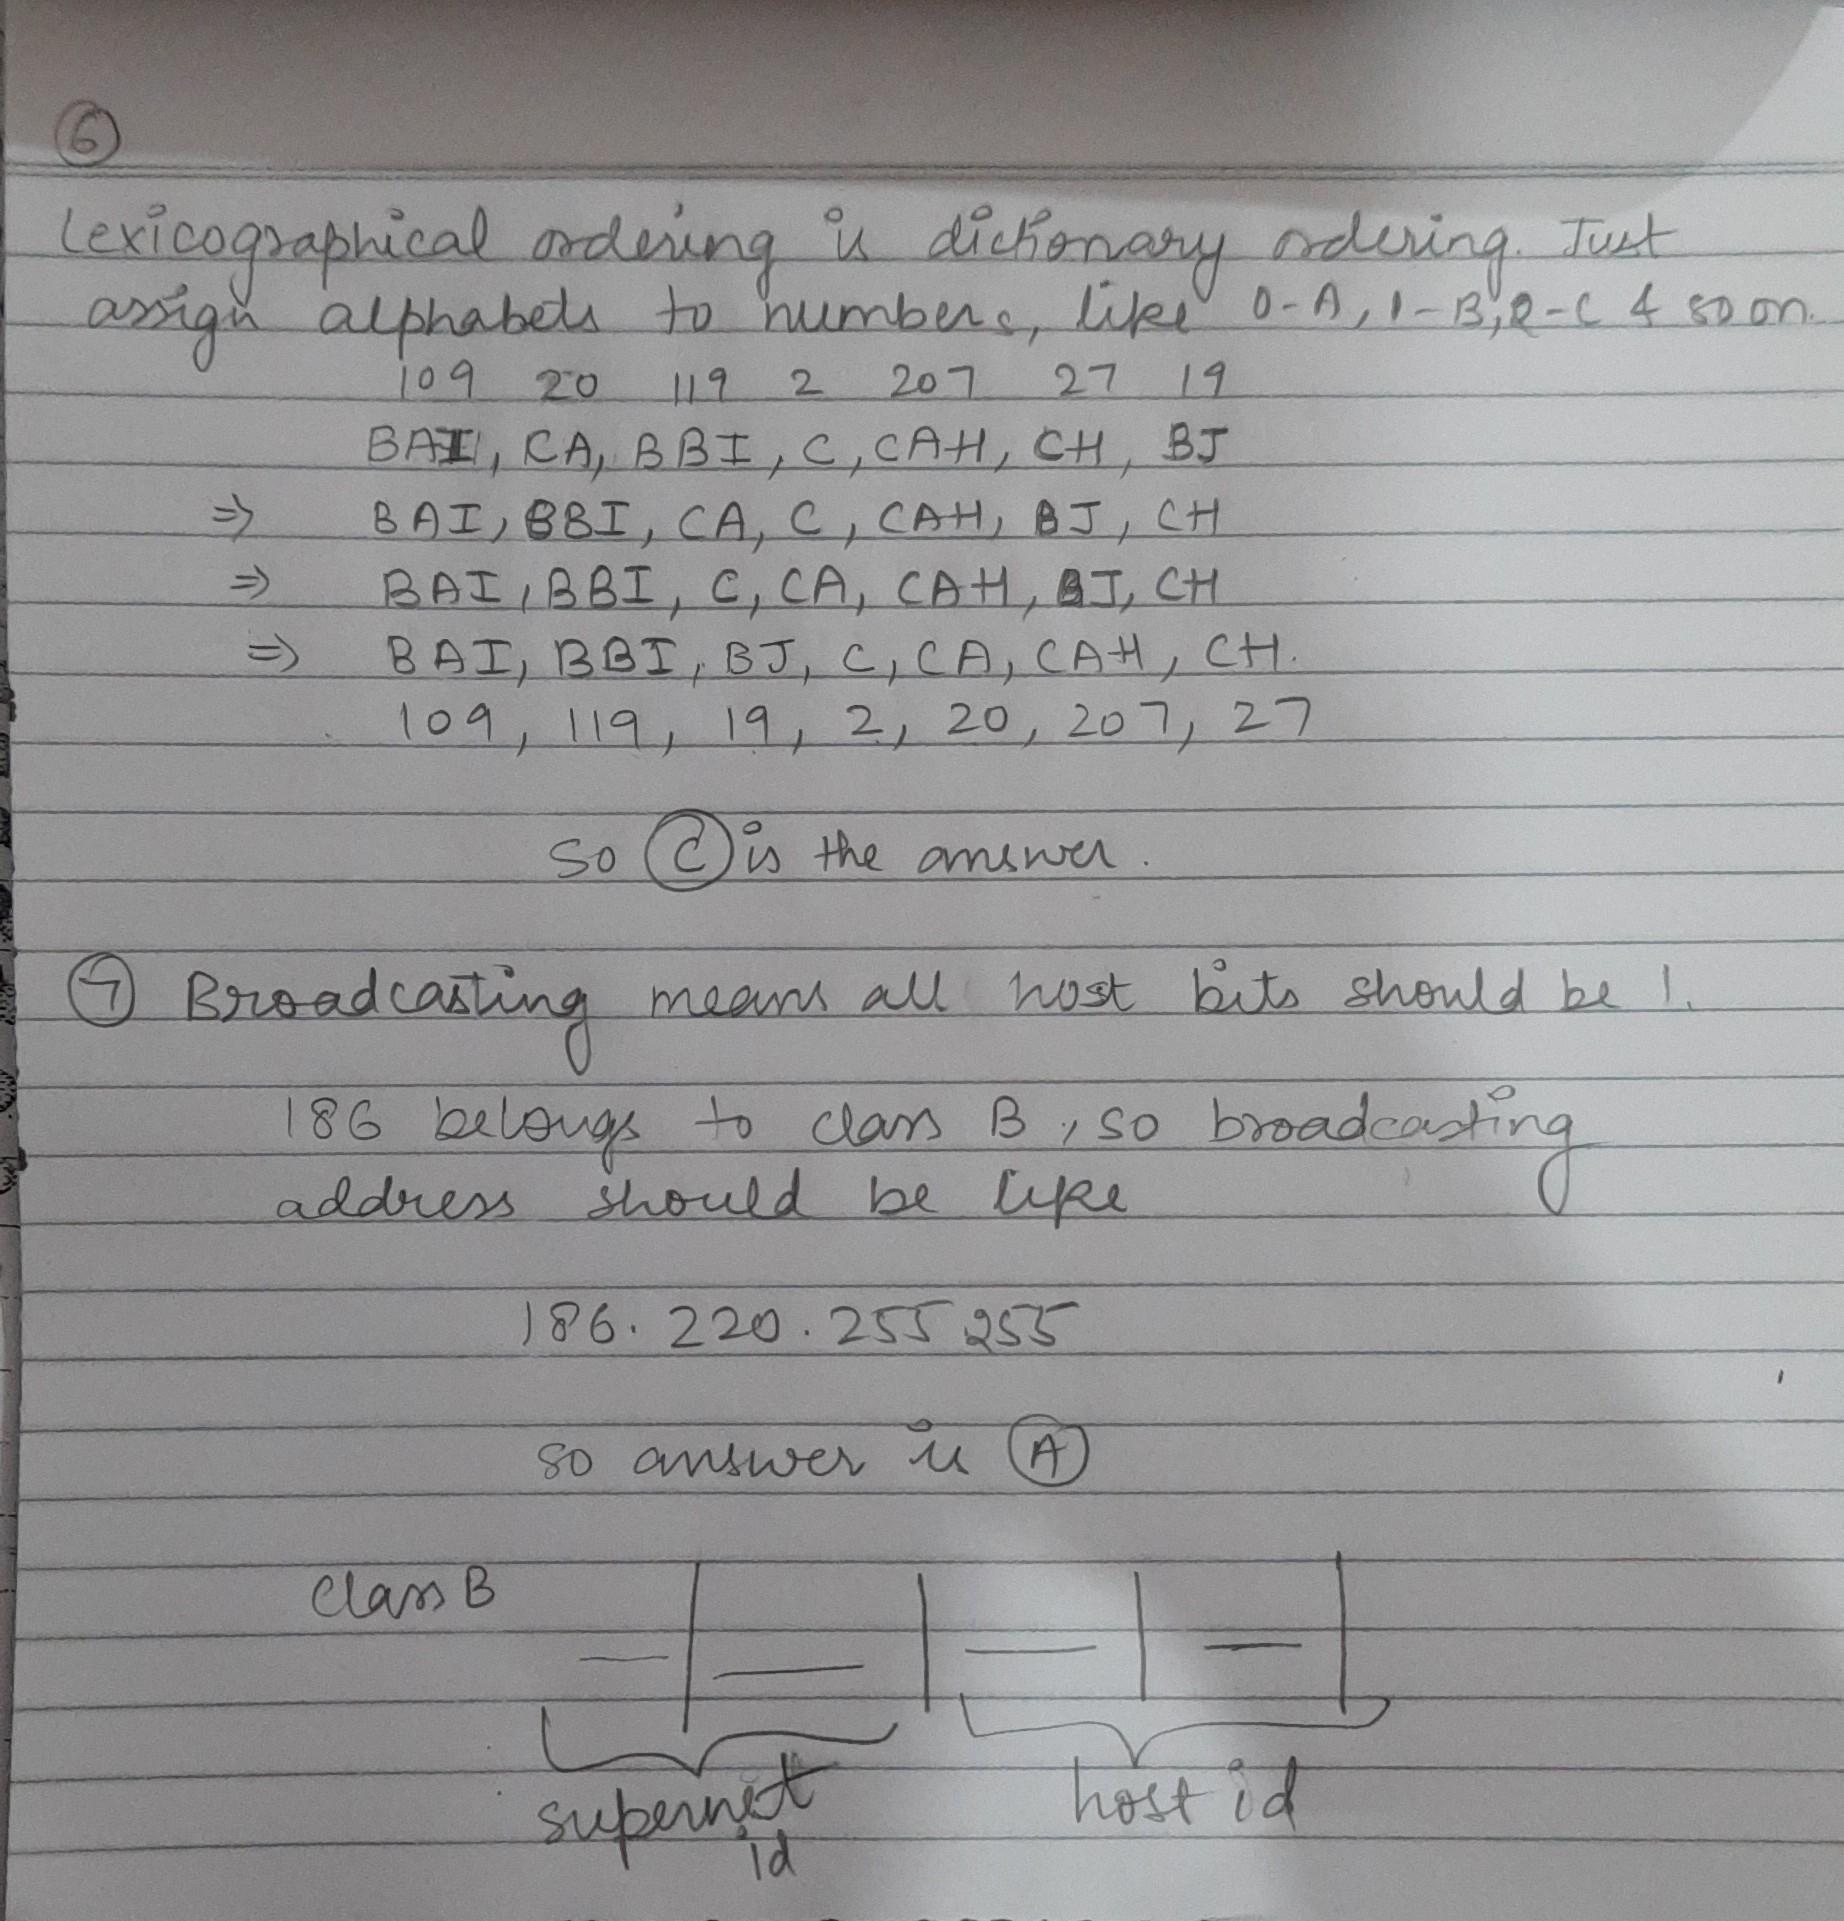 6
Lexicographical ordering is dictionary ordering. Just
assign alphabets to numbers, like 0-A, 1-B, 2-C & so on.
109 20 119 2 207 27 19
BAI, CA, BBI, C, CAH, CH, BJ
⇒ BAI, BBI, CA, C, CAH, BJ, CH
⇒ BAI, BBI, C, CA, CAH, BJ, CH
⇒ BAI, BBI, BJ, C, CA, CAH, CH.
109, 119, 19, 2, 20, 207, 27
So C is the answer.
7 Broadcasting means all host bits should be 1.
186 belongs to class B, so broadcasting
address should be like
186. 220. 255 255
so answer is A
Class B
supernet host id
id